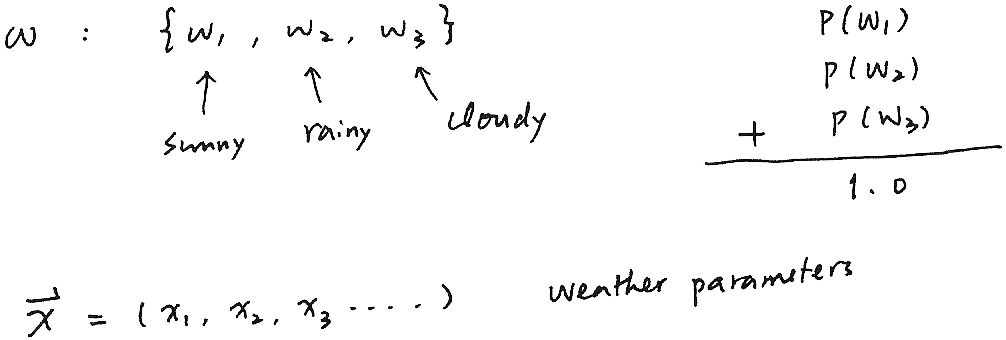 ω : {w₁, w₂, w₃}
↑ ↑ ↑
sunny rainy cloudy
P(w₁)
P(w₂)
+ P(w₃)
1.0
x⃗ = (x₁, x₂, x₃ ....) weather parameters